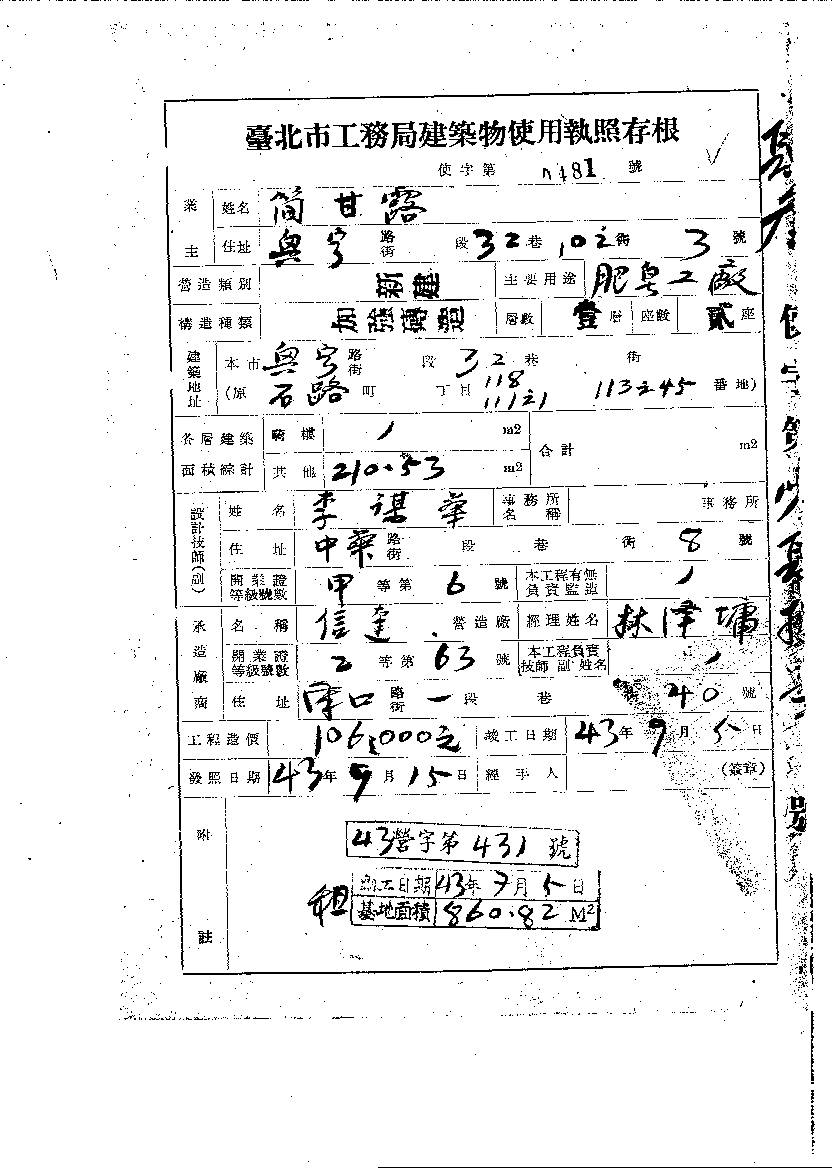 臺北市工務局建築物使用執照存根
使字第 481 號
業主 姓名 簡甘露
住址 興寧 路街 段 32 巷 10之 街 3 號
營造類別 新建 主要用途 肥皂工廠
構造種類 加強磚造 層數 壹 層 座數 貳 座
建築地址 本市 興寧 路街 段 32 巷 街
(原 石路 町 丁目 118 11121 113之45 番地)
各層建築面積綜計 騎樓 / m2 合計 m2
其他 210.53 m2
設計技師(副) 姓名 李謀華 事務所名稱 事務所
住址 中華 路街 段 巷 街 8 號
開業證等級號數 甲 等第 6 號 本工程有無負責監造 /
承造廠商 名稱 信達 營造廠 經理姓名 林津墉
開業證等級號數 乙 等第 63 號 本工程負責技師(副)姓名 /
住址 口 路街 一 段 巷 40 號
工程造價 106,000元 竣工日期 43年9月5日
發照日期 43年9月15日 經手人 (簽章)
附註
43營字第 431 號
工日期 43年7月5日
租 基地面積 860.82 M²